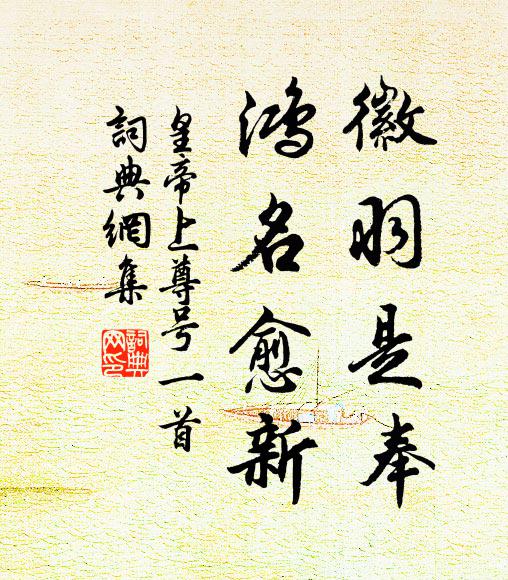 徽羽是奉
鸿名愈新
皇帝上尊号一首
詞典網集
詞典网印